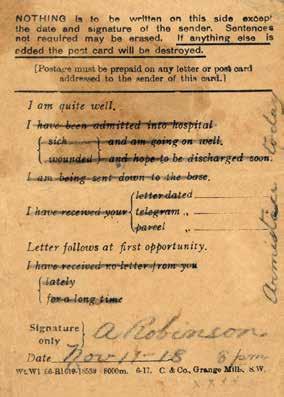 NOTHING is to be written on this side except
the date and signature of the sender. Sentences
not required may be erased. If anything else is
added the post card will be destroyed.
[Postage must be prepaid on any letter or post card
addressed to the sender of this card.]
I am quite well.
I have been admitted into hospital
sick and am going on well.
wounded and hope to be discharged soon.
I am being sent down to the base.
letter dated
I have received your telegram „
parcel „
Letter follows at first opportunity.
I have received no letter from you
lately
for a long time
Signature only A Robinson
Date Nov 11-18 6 pm
6-17. C. & Co., Grange Mills, S.W.
Armistice today